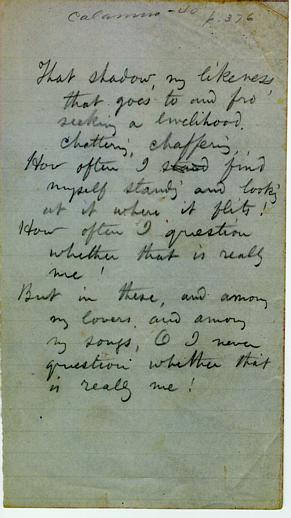 Calamus - 40 p. 376
That shadow, my likeness,
that goes to and fro
seeking a livelihood,
chattering, chaffering,
How often I stand find
myself standing and looking
at it where it flits!
How often I question
whether that is really
me!
But in these, and among
my lovers, and among
my songs, O I never
question whether that
is really me!